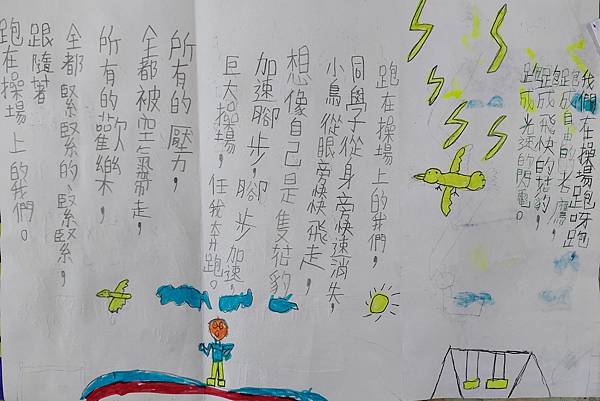 我們在操場跑呀跑
跑成自由的老鷹，
跑成飛快的花豹，
跑成光速的閃電。
跑在操場上的我們，
同學從身旁快速消失，
小鳥從眼旁快飛走，
想像自己是隻花豹
加速腳步，腳步加速，
巨大操場，任我奔跑。
所有的壓力，
全都被空氣帶走，
所有的歡樂，
全都緊緊的、緊緊，
跟隨著
跑在操場上的我們。